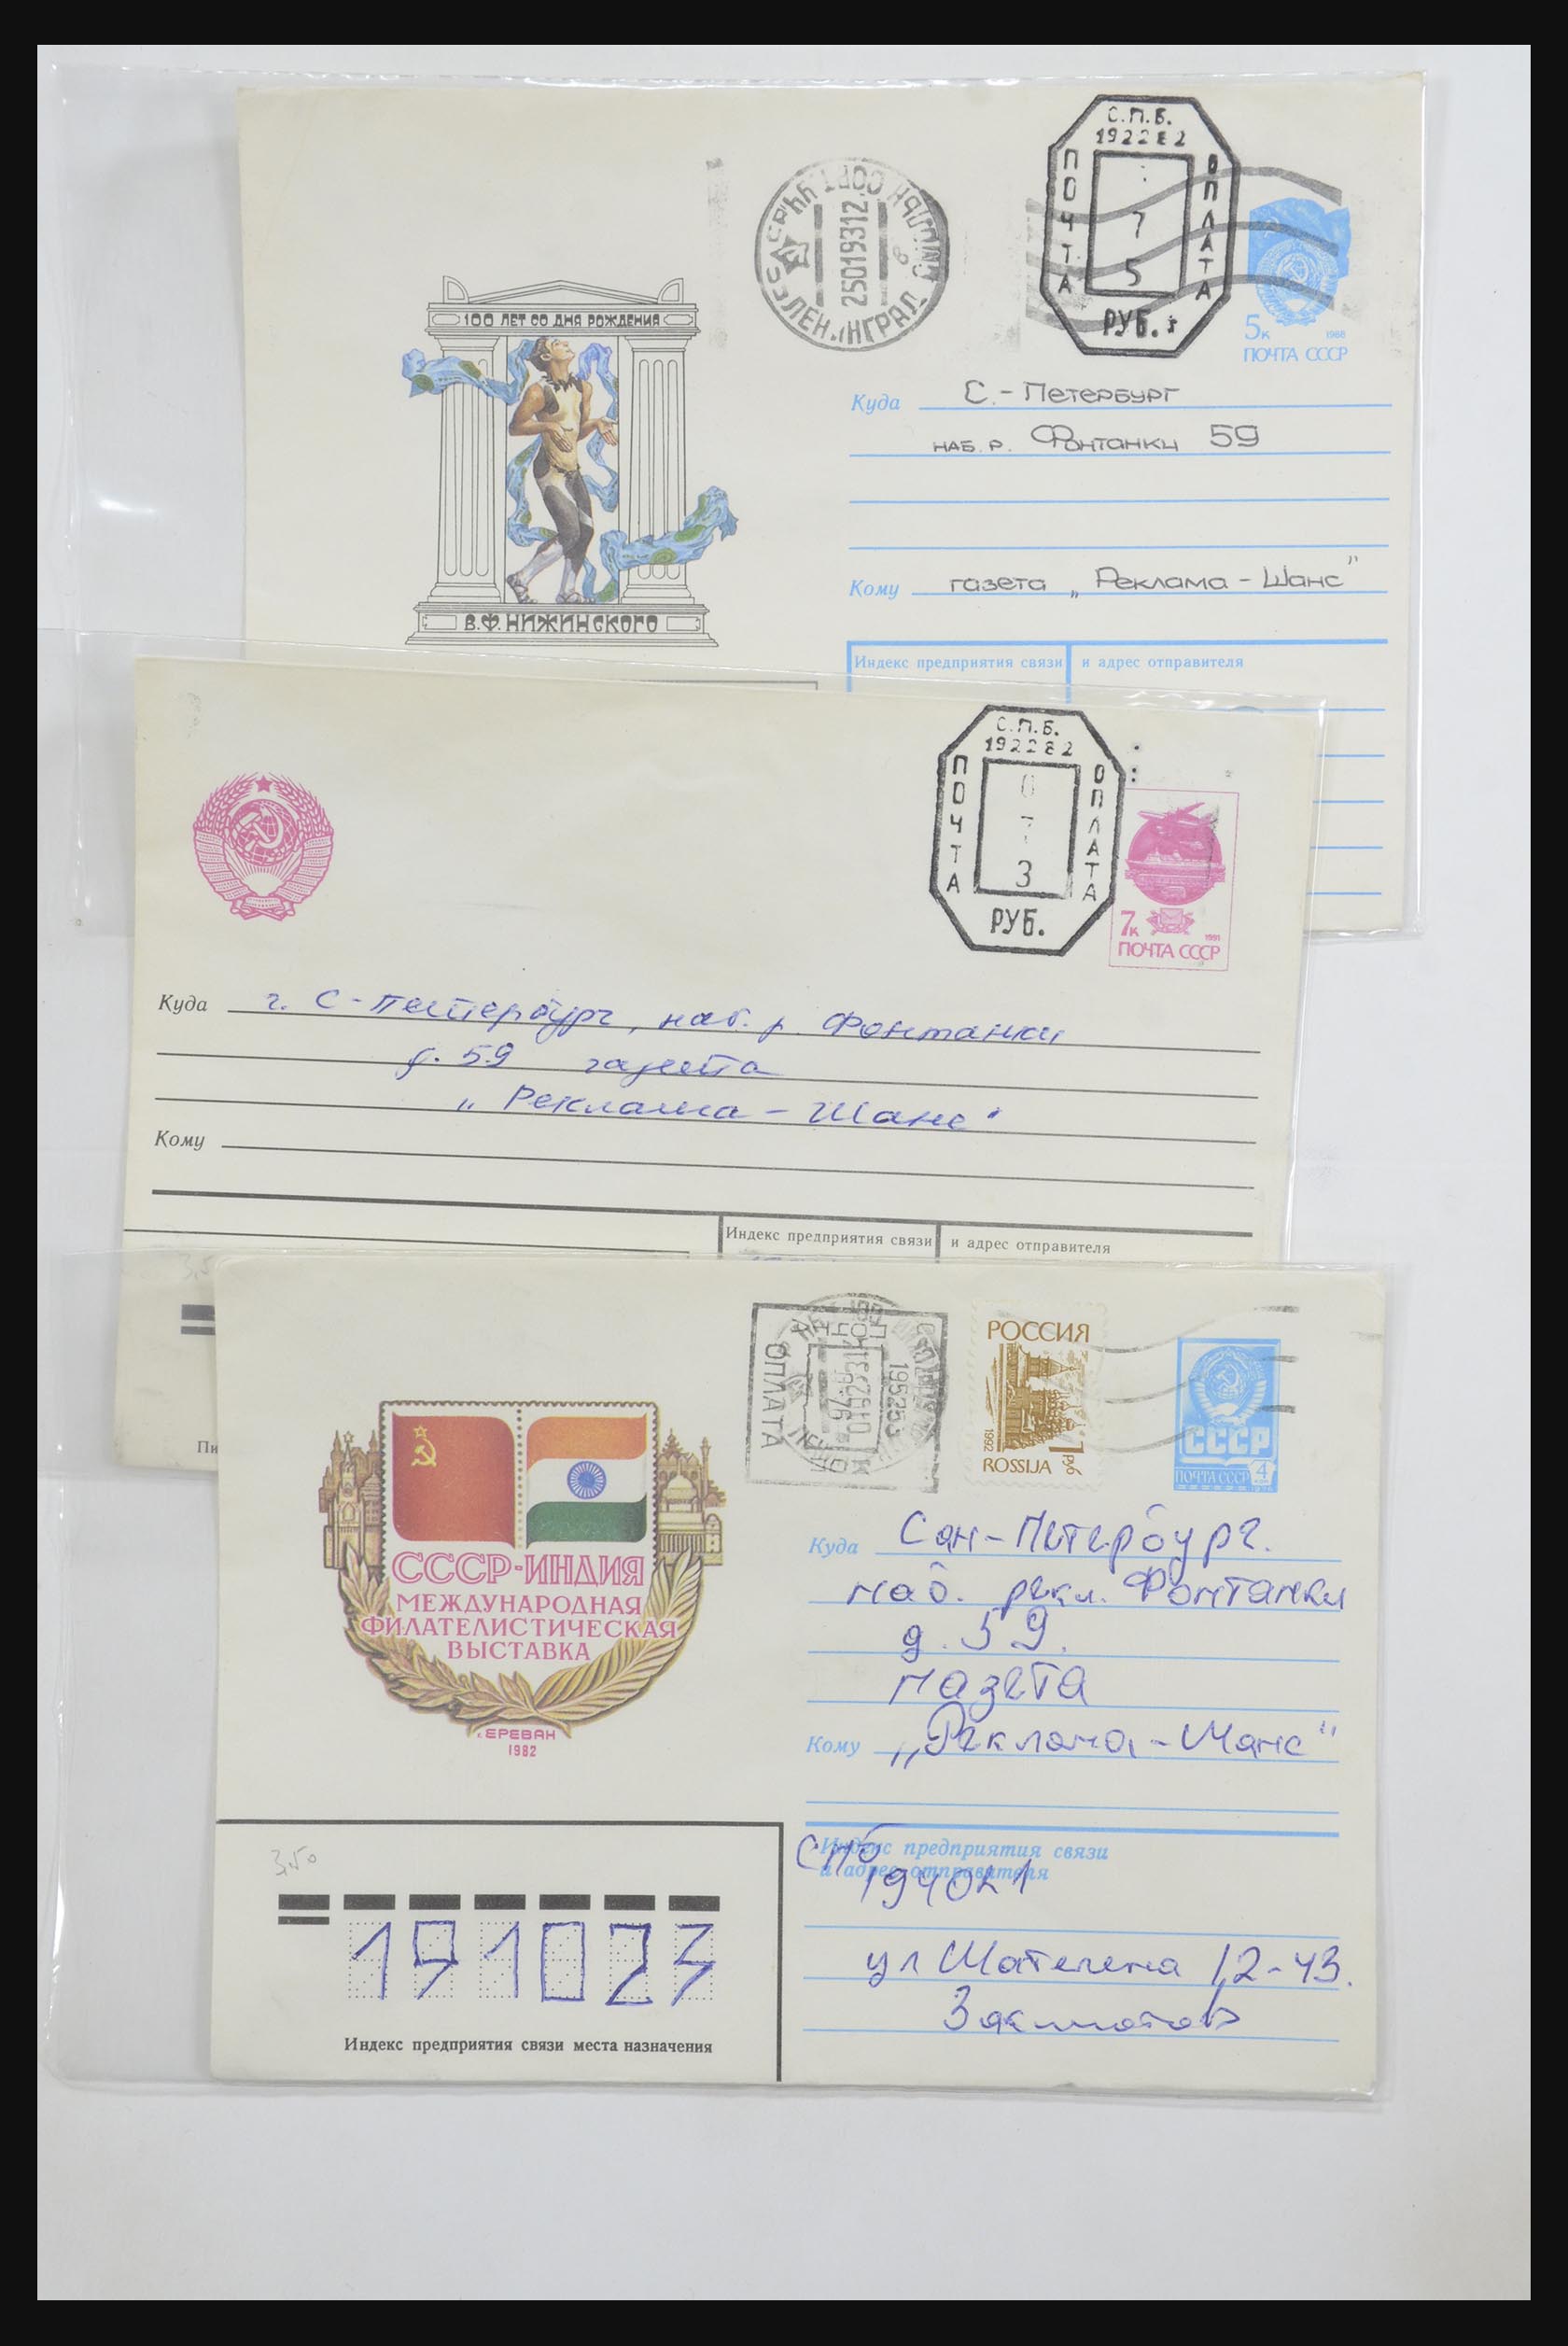 С.П.Б.
192282
ПОЧТА
ОПЛАТА
7
5
РУБ.
25019312
ЛЕНИНГРАД
5к
1988
ПОЧТА СССР
100 ЛЕТ СО ДНЯ РОЖДЕНИЯ
В.Ф. НИЖИНСКОГО
Куда С.-Петербург
наб. р. Фонтанки 59
Кому газета „Реклама - Шанс"
Индекс предприятия связи и адрес отправителя
С.П.Б.
192282
ПОЧТА
ОПЛАТА
0
7
3
РУБ.
7к
1991
ПОЧТА СССР
Куда г. С-Петербург, наб. р. Фонтанки
д. 59 газета
„Реклама - Шанс"
Кому
Индекс предприятия связи и адрес отправителя
3,5
Пи
ПОЧТА
ОПЛАТА
195253
РОССИЯ
1992
1 руб
ROSSIJA
СССР
ПОЧТА СССР 4
СССР-ИНДИЯ
МЕЖДУНАРОДНАЯ
ФИЛАТЕЛИСТИЧЕСКАЯ
ВЫСТАВКА
г. ЕРЕВАН
1982
Куда Сан-Петербург.
наб. рекл. Фонтанки
д. 59.
газета
Кому „Реклама - Шанс"
Индекс предприятия связи
и адрес отправителя
СПб
194021
ул Шателена 12-43.
3,50
191023
Индекс предприятия связи места назначения